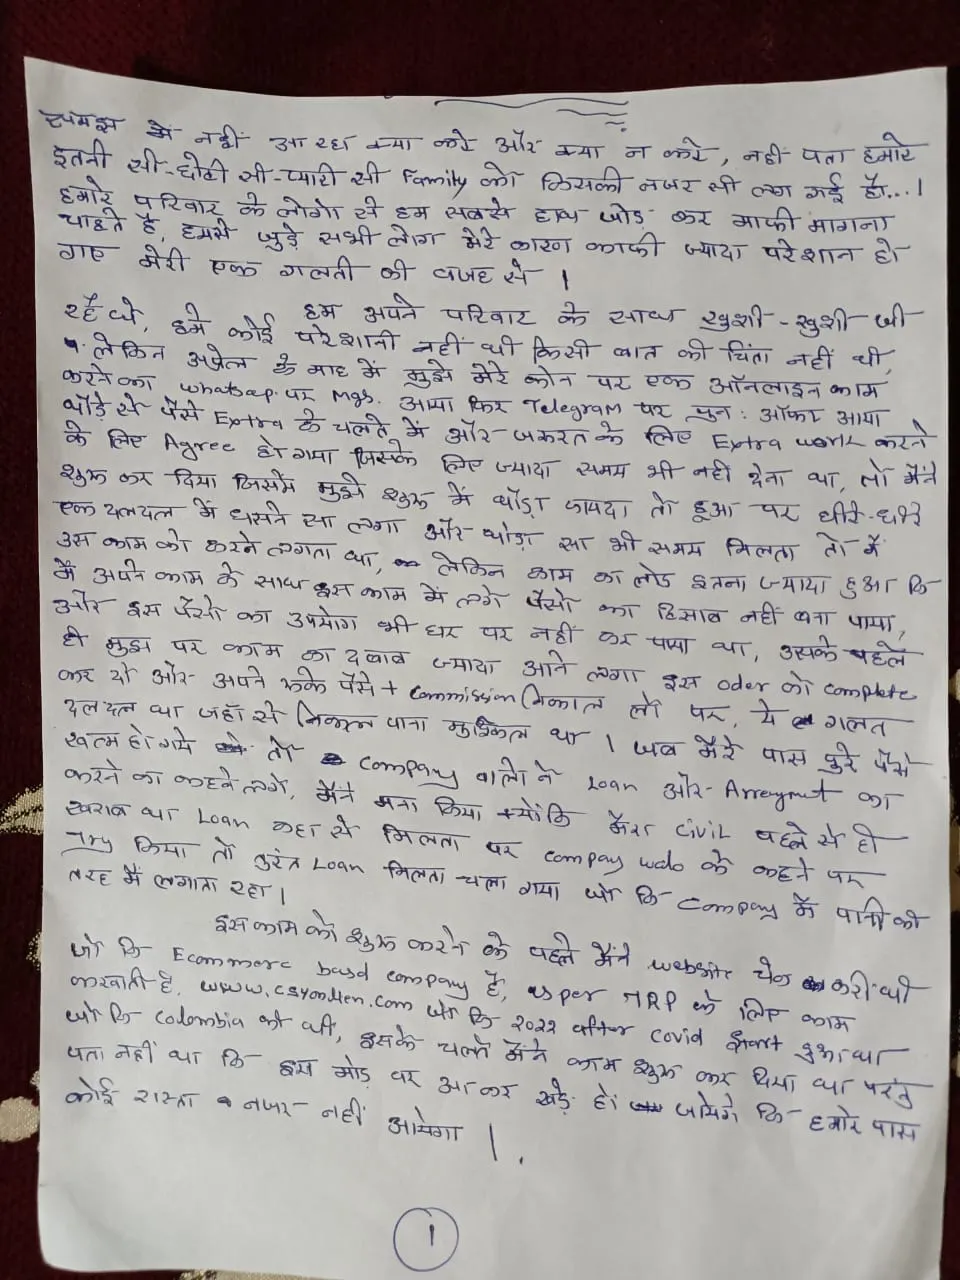 समझ में नहीं आ रहा क्या करे और क्या न करे, नहीं पता हमारे
इतनी सी-छोटी सी-प्यारी सी Family को किसकी नजर सी लग गई है...।
हमारे परिवार के लोगो से हम सबसे हाथ जोड़ कर माफी मागना
चाहते है, हमसे जुड़े सभी लोग मेरे कारण काफी ज्यादा परेशान हो
गए मेरी एक गलती की वजह से।
हम अपने परिवार के साथ खुशी-खुशी जी
रहे थे, हमे कोई परेशानी नहीं थी किसी बात की चिंता नहीं थी,
लेकिन अप्रेल के माह में मुझे मेरे फोन पर एक ऑनलाइन काम
करने का whatsap पर Mgs. आया फिर Telegram पर पुन: ऑफर आया
थोड़े से पैसे Extra के चलते में और जरूरत के लिए Extra work करने
के लिए Agree हो गया जिसके लिए ज्यादा समय भी नहीं देना था, तो मैंने
शुरू कर दिया जिसमें मुझे शुरू में थोड़ा फायदा तो हुआ पर धीरे-धीरे
एक दलदल में धसने सा लगा और थोड़ा सा भी समय मिलता तो मैं
उस काम को करने लगता था, लेकिन काम का लोड इतना ज्यादा हुआ कि
मैं अपने काम के साथ इस काम में लगे पैसों का हिसाब नहीं बना पाया,
और इस पैसों का उपयोग भी घर पर नहीं कर पाया था, उसके पहले
ही मुझ पर काम का दबाव ज्यादा आने लगा इस oder को complete
कर दो और अपने रुके पैसे + commission निकाल लो पर, ये गलत
दलदल था जहाँ से निकल पाना मुश्किल था। जब मेरे पास पुरे पैसे
खत्म हो गये तो company वालो ने Loan और Arreymnt का
करने का कहने लगे, मैंने मना किया क्योंकि मेरा civil पहले से ही
खराब था Loan कहा से मिलता पर compay walo के कहने पर
Try किया तो तुरंत Loan मिलता चला गया जो कि company में पानी की
तरह मैं लगाता रहा।
इस काम को शुरू करने के पहले मैंने website चेक करी थी
जो कि Ecommerc based company है, as per TRP के लिए काम
करवाती है. www.csyonllen.com जो कि 2022 after covid start हुआ था
जो कि colombia की थी, इसके चलते मैंने काम शुरू कर दिया था परंतु
पता नहीं था कि इस मोड़ पर आ कर खड़े हो जायेगे कि हमारे पास
कोई रास्ता नजर नहीं आयेगा।
1